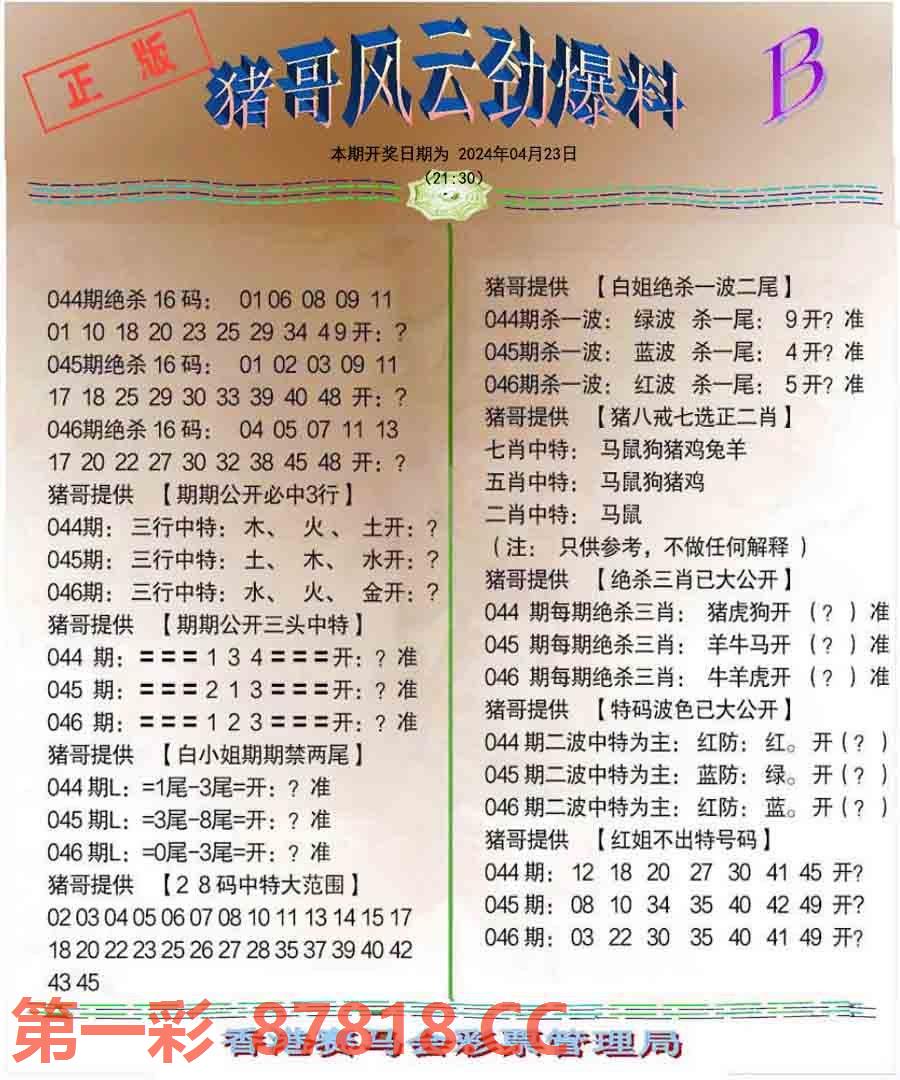 正版
猪哥风云劲爆料
B
本期开奖日期为 2024年04月23日
(21:30)
044期绝杀 16 码： 01 06 08 09 11
01 10 18 20 23 25 29 34 49 开：?
045期绝杀 16 码： 01 02 03 09 11
17 18 25 29 30 33 39 40 48 开：?
046期绝杀 16 码： 04 05 07 11 13
17 20 22 27 30 32 38 45 48 开：?
猪哥提供 【期期公开必中3行】
044期：三行中特：木、 火 、 土开：?
045期：三行中特：土、 木、 水开：?
046期：三行中特：水、 火、 金开：?
猪哥提供 【期期公开三头中特】
044 期：=== 1 3 4 ===开：? 准
045 期：=== 2 1 3 ===开：? 准
046 期：=== 1 2 3 ===开：? 准
猪哥提供 【白小姐期期禁两尾】
044 期L：=1尾-3尾=开：? 准
045 期L：=3尾-8尾=开：? 准
046 期L：=0尾-3尾=开：? 准
猪哥提供 【2 8 码中特大范围】
02 03 04 05 06 07 08 10 11 13 14 15 17
18 20 22 23 25 26 27 28 35 37 39 40 42
43 45
猪哥提供 【白姐绝杀一波二尾】
044期杀一波： 绿波 杀一尾： 9 开? 准
045期杀一波： 蓝波 杀一尾： 4 开? 准
046期杀一波： 红波 杀一尾： 5 开? 准
猪哥提供 【猪八戒七选正二肖】
七肖中特： 马鼠狗猪鸡兔羊
五肖中特： 马鼠狗猪鸡
二肖中特： 马鼠
（注： 只供参考，不做任何解释 ）
猪哥提供 【绝杀三肖已大公开】
044 期每期绝杀三肖： 猪虎狗开 （? ）准
045 期每期绝杀三肖： 羊牛马开 （? ）准
046 期每期绝杀三肖： 牛羊虎开 （? ）准
猪哥提供 【特码波色已大公开】
044 期二波中特为主：红防：红。开（? ）
045 期二波中特为主：蓝防：绿。开（? ）
046 期二波中特为主：红防：蓝。开（? ）
猪哥提供 【红姐不出特号码】
044 期： 12 18 20 27 30 41 45 开?
045 期： 08 10 34 35 40 42 49 开?
046 期： 03 22 30 35 40 41 49 开?
第一彩 87818.CC
香港赛马会彩票管理局